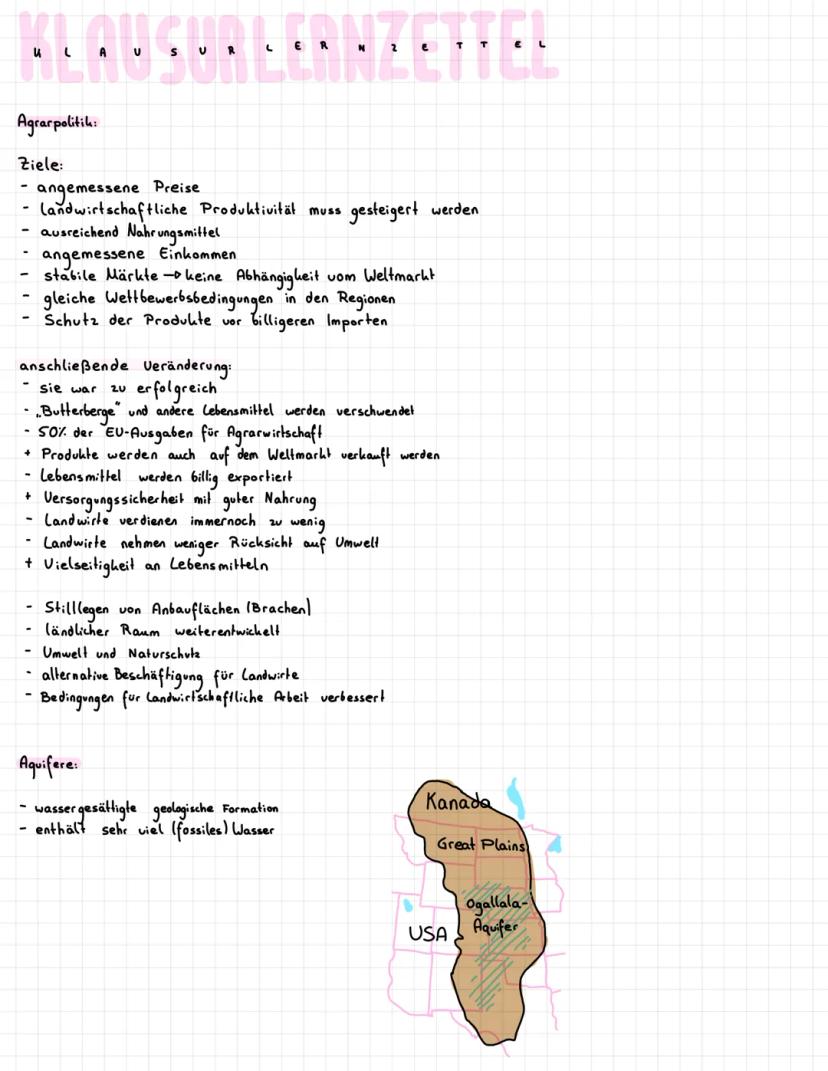 KLAUSURLERNZETTEL
Agrarpolitik:
Ziele:
- angemessene Preise
- landwirtschaftliche Produktivität muss gesteigert werden
- ausreichend Nahrungsmittel
- angemessene Einkommen
- stabile Märkte → keine Abhängigkeit vom Weltmarkt
- gleiche Wettbewerbsbedingungen in den Regionen
- Schutz der Produkte vor billigeren Importen
anschließende Veränderung:
- sie war zu erfolgreich
- „Butterberge" und andere Lebensmittel werden verschwendet
- 50% der EU-Ausgaben für Agrarwirtschaft
+ Produkte werden auch auf dem Weltmarkt verkauft werden
- Lebensmittel werden billig exportiert
+ Versorgungssicherheit mit guter Nahrung
- Landwirte verdienen immernoch zu wenig
- Landwirte nehmen weniger Rücksicht auf Umwelt
+ Vielseitigkeit an Lebensmitteln
- Stilllegen von Anbauflächen (Brachen)
- ländlicher Raum weiterentwickelt
- Umwelt und Naturschutz
- alternative Beschäftigung für Landwirte
- Bedingungen für Landwirtschaftliche Arbeit verbessert
Aquifere:
- wassergesättigte geologische Formation
- enthält sehr viel (fossiles) Wasser
Kanada
Great Plains
Ogallala-
Aquifer
USA